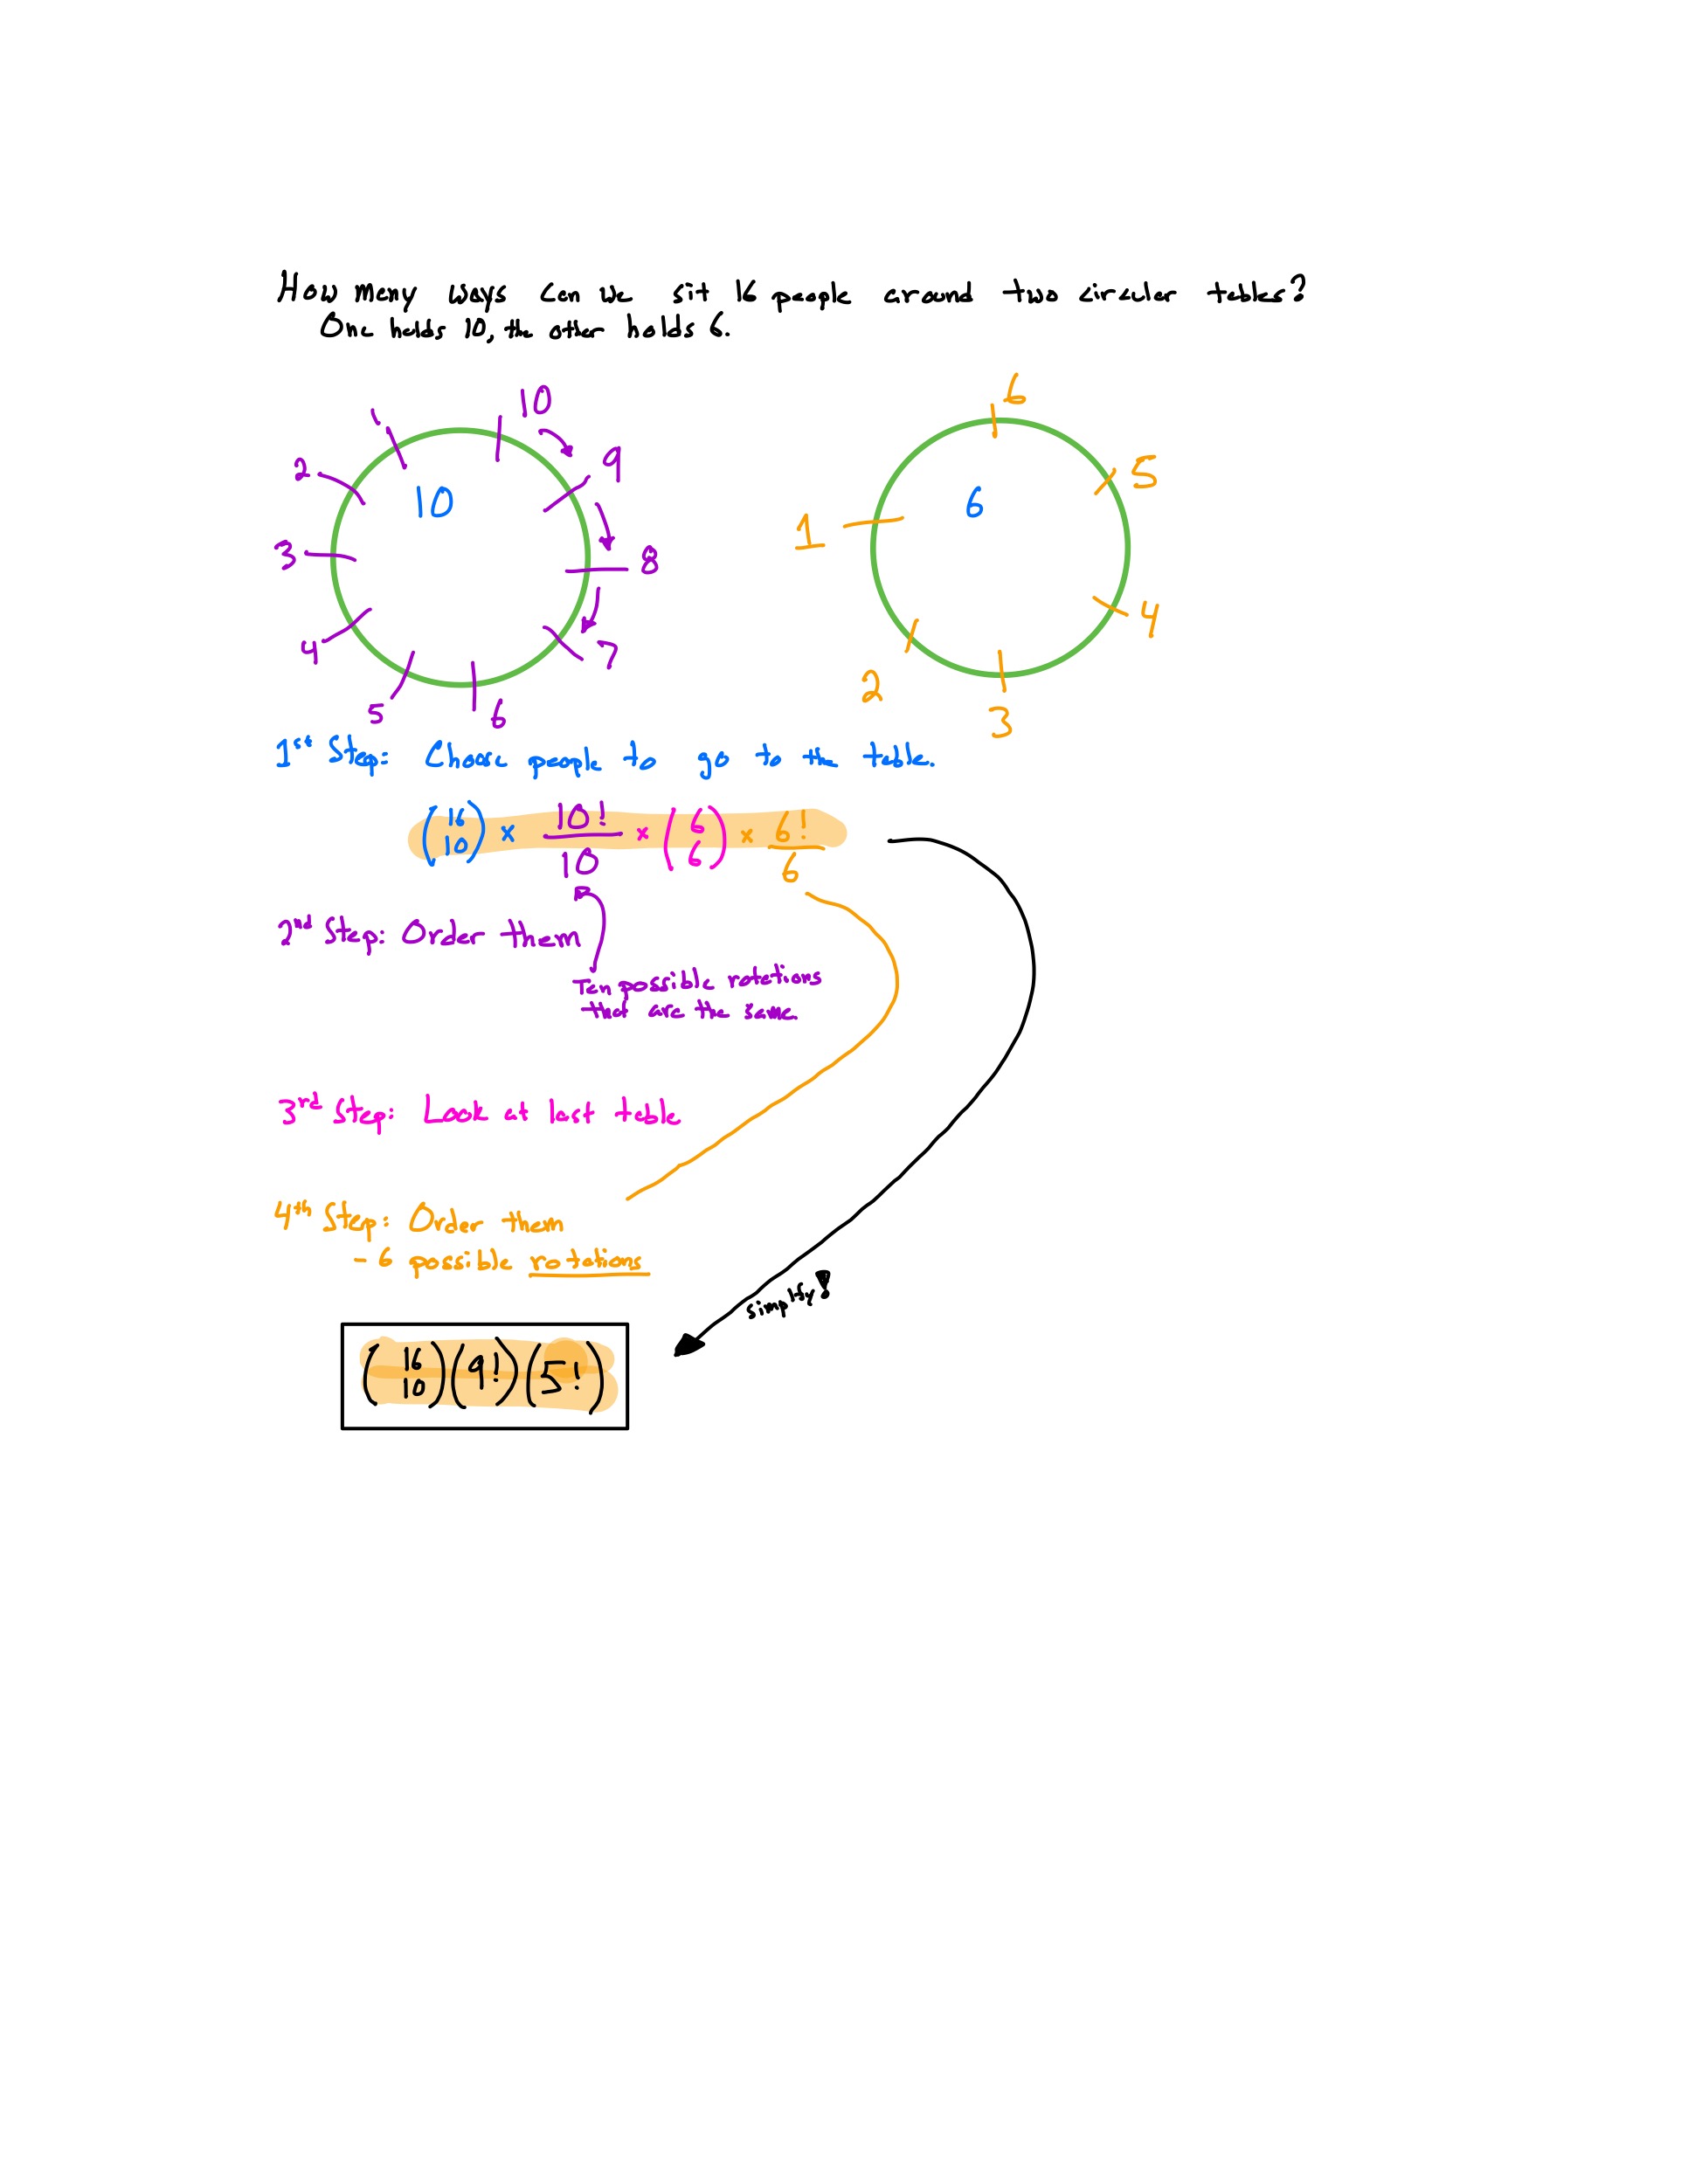 How many ways can we sit 16 people around two circular tables?
One holds 10, the other holds 6.
1 10
2 9
10
3 8
4 7
5 6
6
5
6
1
4
2
3
1st Step: Choose people to go to the table.
(16 10) × 10!/10 × (6 6) × 6!/6
2nd Step: Order them
Ten possible rotations
that are the same.
3rd Step: Look at last table
4th Step: Order them
- 6 possible rotations
simplify!
(16 10)(9!)(5!)